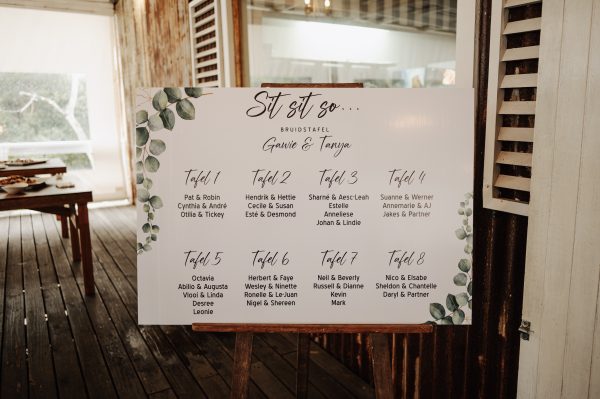 Sit sit so...
BRUIDSTAFEL
Gawie & Tanya
Tafel 1
Pat & Robin
Cynthia & André
Otilia & Tickey
Tafel 2
Hendrik & Hettie
Cecile & Susan
Esté & Desmond
Tafel 3
Sharné & Aesc-Leah
Estelle
Anneliese
Johan & Lindie
Tafel 4
Suanne & Werner
Annemarie & AJ
Jakes & Partner
Tafel 5
Octavia
Abilio & Augusta
Vlooi & Linda
Desree
Leonie
Tafel 6
Herbert & Faye
Wesley & Ninette
Ronelle & Le-Juan
Nigel & Shereen
Tafel 7
Neil & Beverly
Russell & Dianne
Kevin
Mark
Tafel 8
Nico & Elsabe
Sheldon & Chantelle
Daryl & Partner